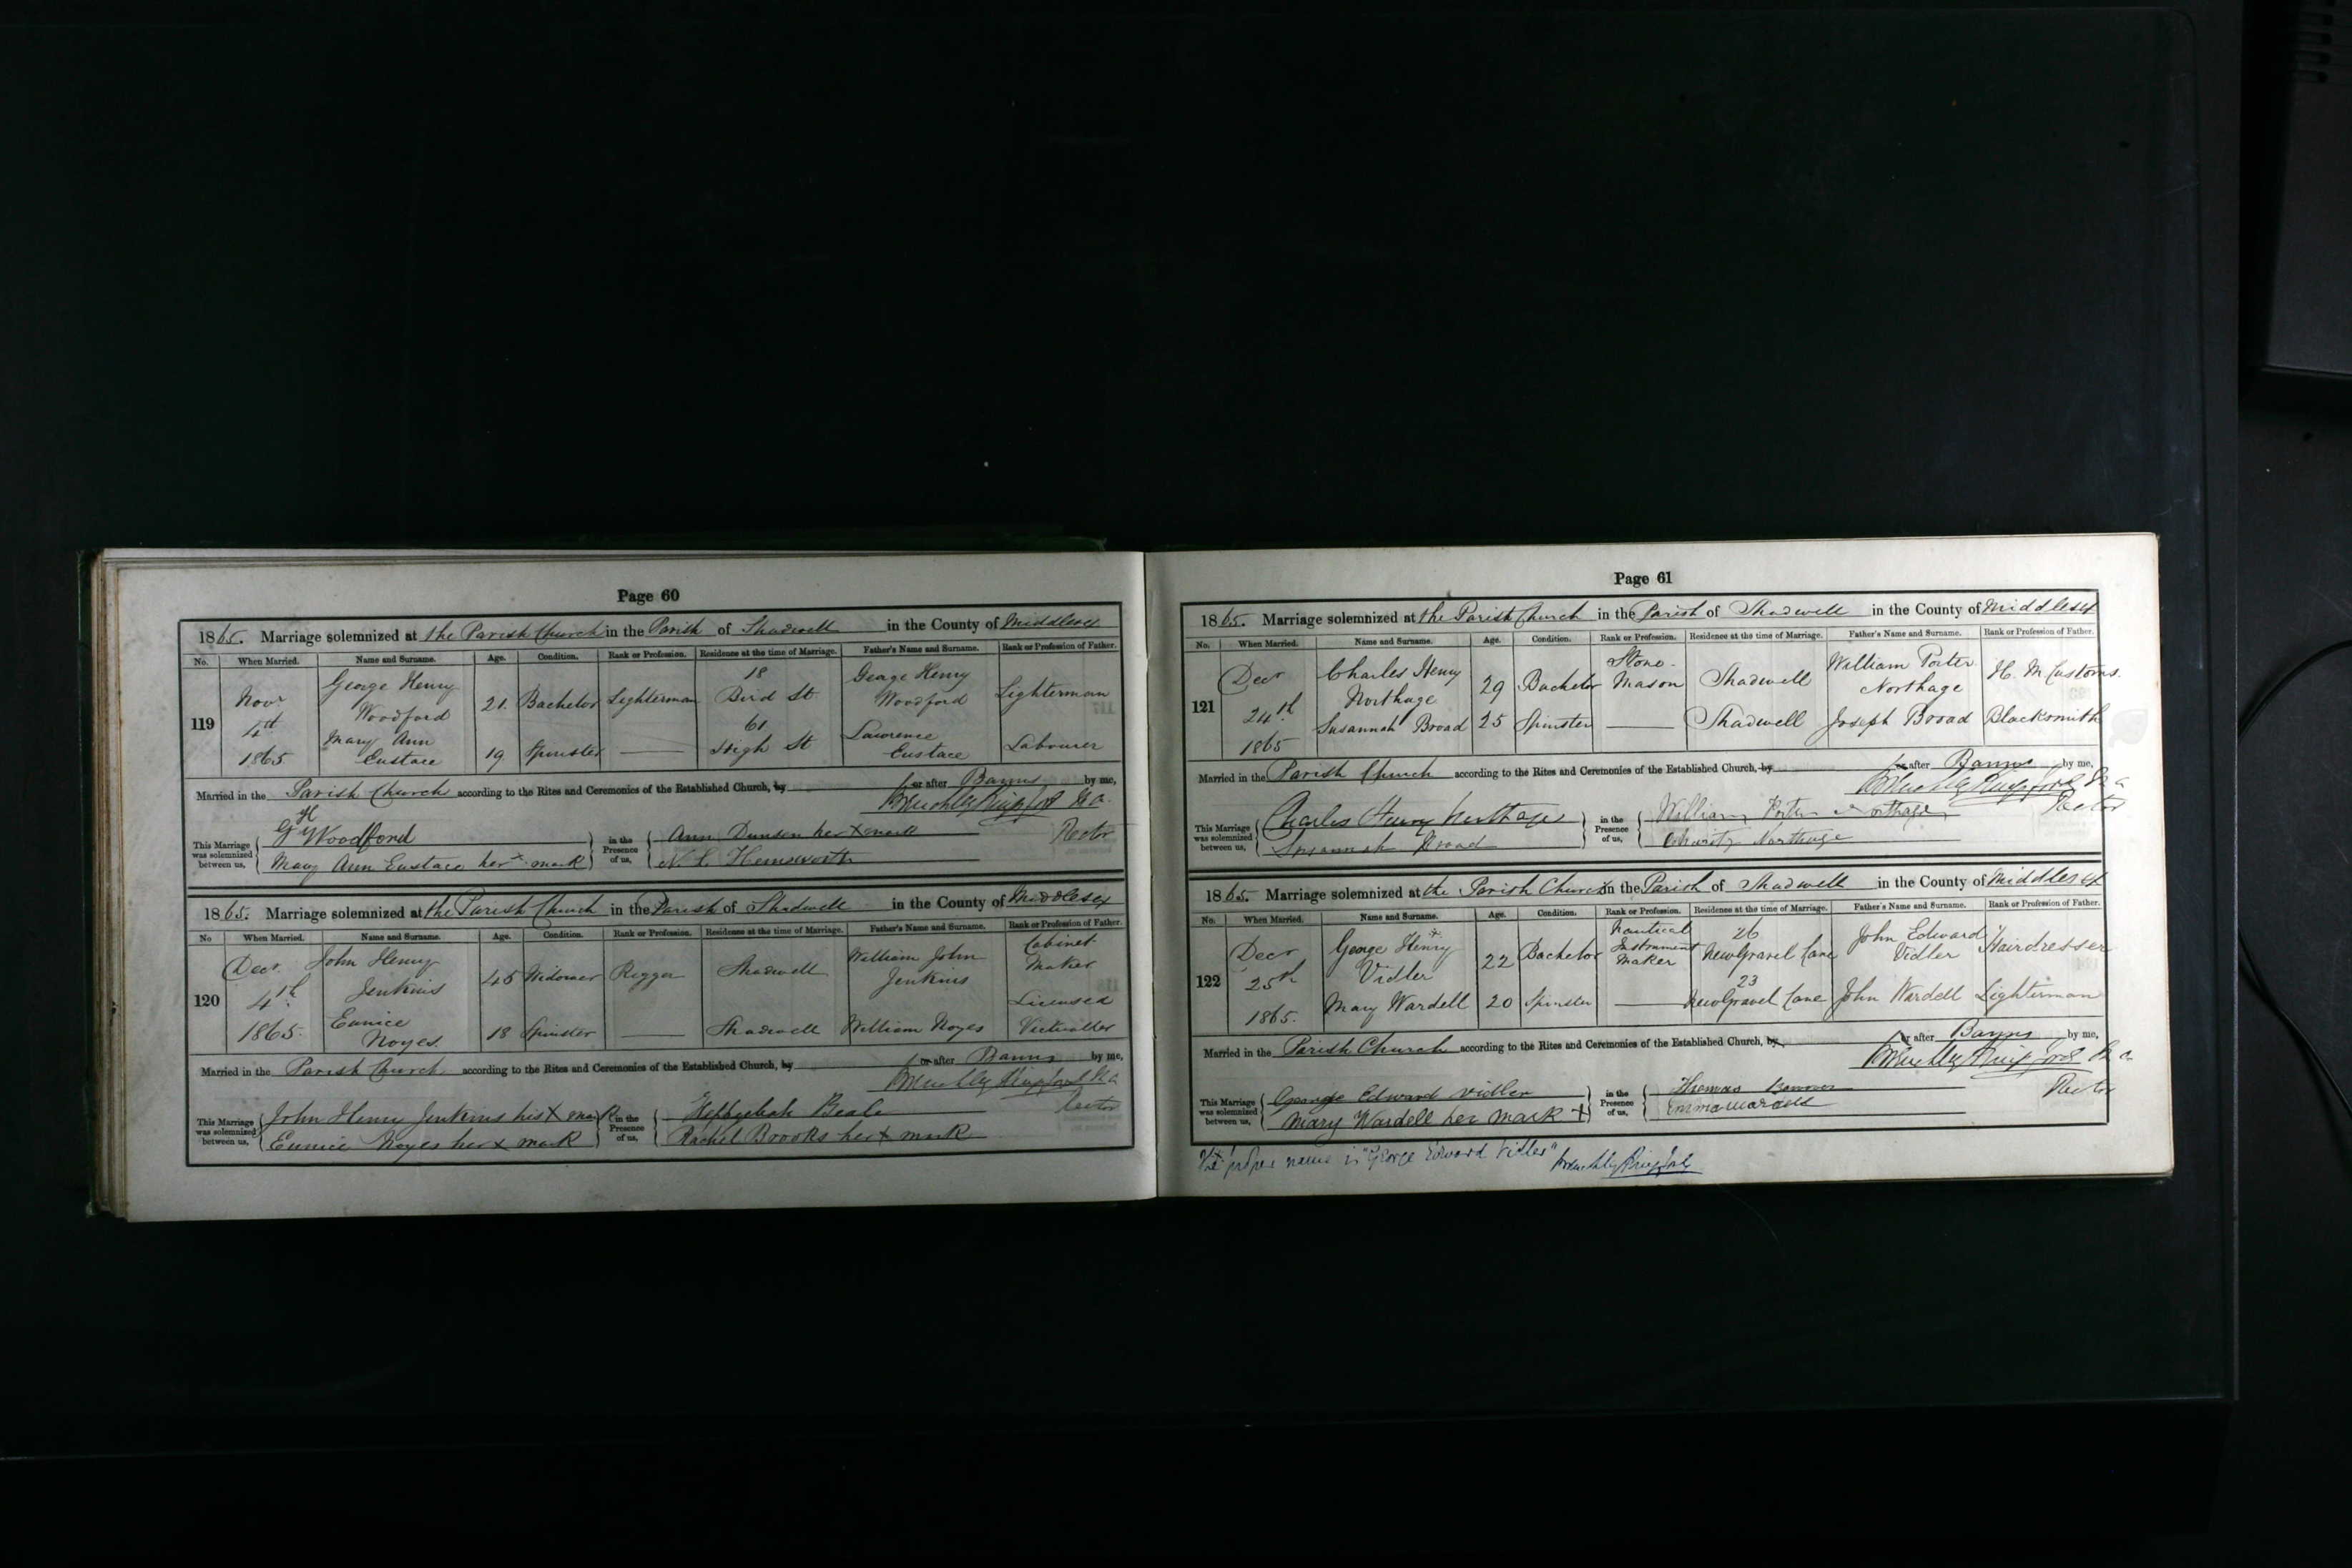 Page 60
1865. Marriage solemnized at the Parish Church in the Parish of Shadwell in the County of Middlesex
No. When Married. Name and Surname. Age. Condition. Rank or Profession. Residence at the time of Marriage. Father's Name and Surname. Rank or Profession of Father.
119 Novr 4th 1865 George Henry Woodford 21. Bachelor Lighterman 18 Bird St George Henry Woodford Lighterman
Mary Ann Eustace 19 Spinster 61 High St Lawrence Eustace Labourer
Married in the Parish Church according to the Rites and Ceremonies of the Established Church, by or after Banns by me,
Brenchley Kingsford M.A.
Rector
This Marriage was solemnized between us, G H Woodford in the Presence of us, Ann Dunson her x mark
Mary Ann Eustace her x mark N. L. Hemsworth
1865. Marriage solemnized at the Parish Church in the Parish of Shadwell in the County of Middlesex
No When Married. Name and Surname. Age. Condition. Rank or Profession. Residence at the time of Marriage. Father's Name and Surname. Rank or Profession of Father.
120 Decr. 4th. 1865. John Henry Jenkins 45 Widower Rigger Shadwell William John Jenkins Cabinet Maker
Eunice Noyes. 18 Spinster Shadwell William Noyes Licensed Victualler
Married in the Parish Church according to the Rites and Ceremonies of the Established Church, by or after Banns by me,
Brenchley Kingsford M.A.
Rector
This Marriage was solemnized between us, John Henry Jenkins his x mark in the Presence of us, Hephzebah Beale
Eunice Noyes her x mark Rachel Brooks her x mark
Page 61
1865. Marriage solemnized at the Parish Church in the Parish of Shadwell in the County of Middlesex
No. When Married. Name and Surname. Age. Condition. Rank or Profession. Residence at the time of Marriage. Father's Name and Surname. Rank or Profession of Father.
121 Decr 24th. 1865 Charles Henry Northage 29 Bachelor Stone-Mason Shadwell William Porter Northage H. M. Customs.
Susannah Broad 25 Spinster Shadwell Joseph Broad Blacksmith
Married in the Parish Church according to the Rites and Ceremonies of the Established Church, by or after Banns by me,
Brenchley Kingsford M.A.
Rector
This Marriage was solemnized between us, Charles Henry Northage in the Presence of us, William Porter Northage
Susannah Broad Charity Northage
1865. Marriage solemnized at the Parish Church in the Parish of Shadwell in the County of Middlesex
No. When Married. Name and Surname. Age. Condition. Rank or Profession. Residence at the time of Marriage. Father's Name and Surname. Rank or Profession of Father.
122 Decr 25th 1865. George Henry x Vidler 22 Bachelor Nautical Instrument Maker 26 New Gravel Lane John Edward Vidler Hairdresser
Mary Wardell 20 Spinster 23 New Gravel Lane John Wardell Lighterman
Married in the Parish Church according to the Rites and Ceremonies of the Established Church, by or after Banns by me,
Brenchley Kingsford M.A.
Rector
This Marriage was solemnized between us, George Edward Vidler in the Presence of us, Thomas
Mary Wardell her mark x Emma Wardell
proper name is "George Edward Vidler" Brenchley Kingsford